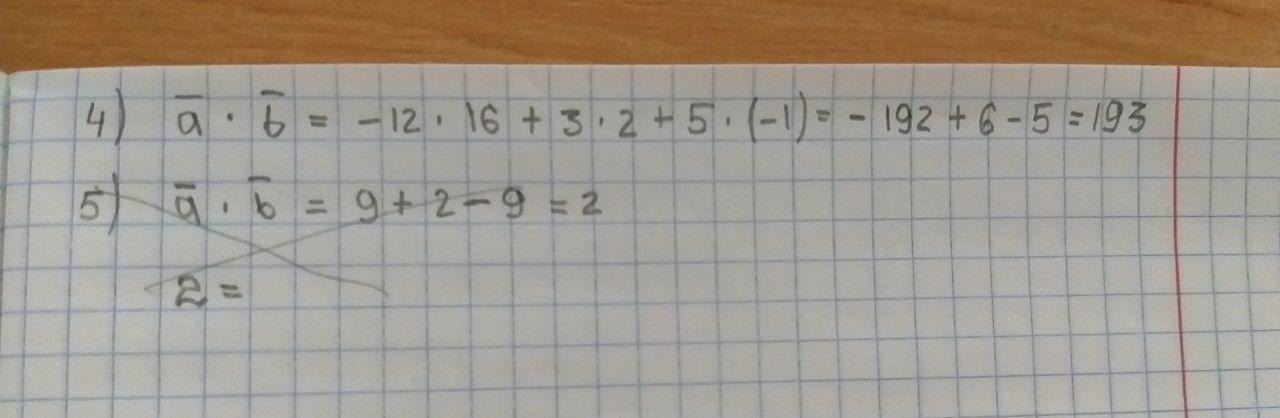 4) a̅ · b̅ = -12 · 16 + 3 · 2 + 5 · (-1) = - 192 + 6 - 5 = 193
5) a̅ · b̅ = 9 + 2 - 9 = 2
2 =